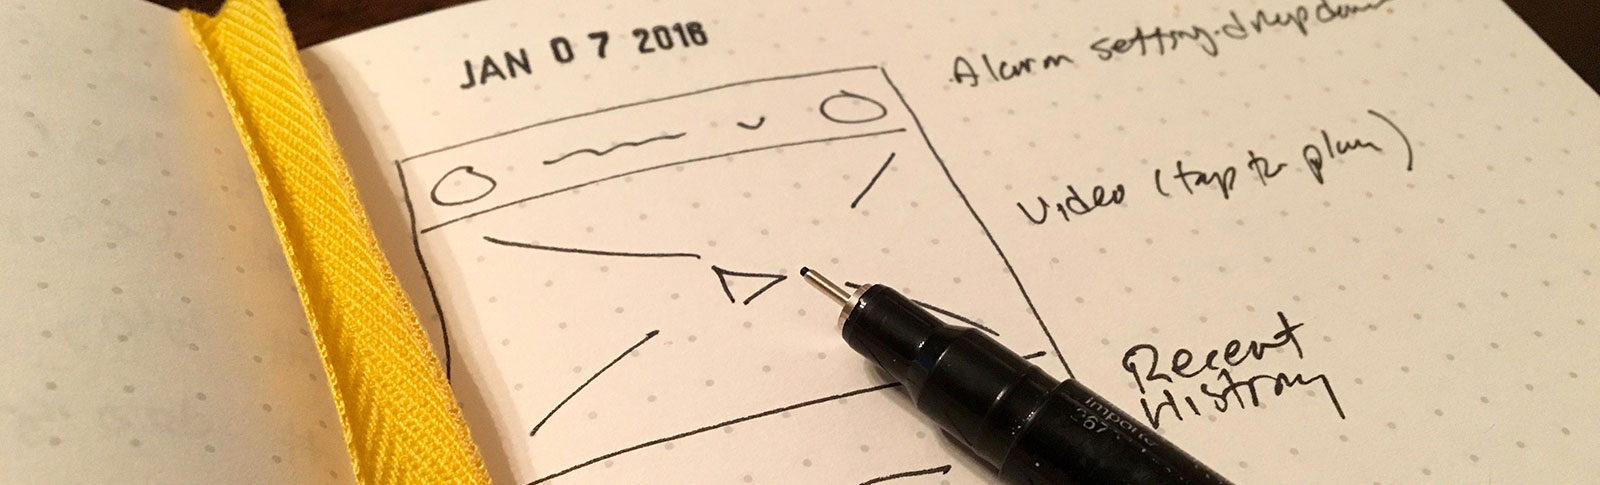 JAN 07 2016
Alarm setting dropdown
Video (tap to play)
Recent
History